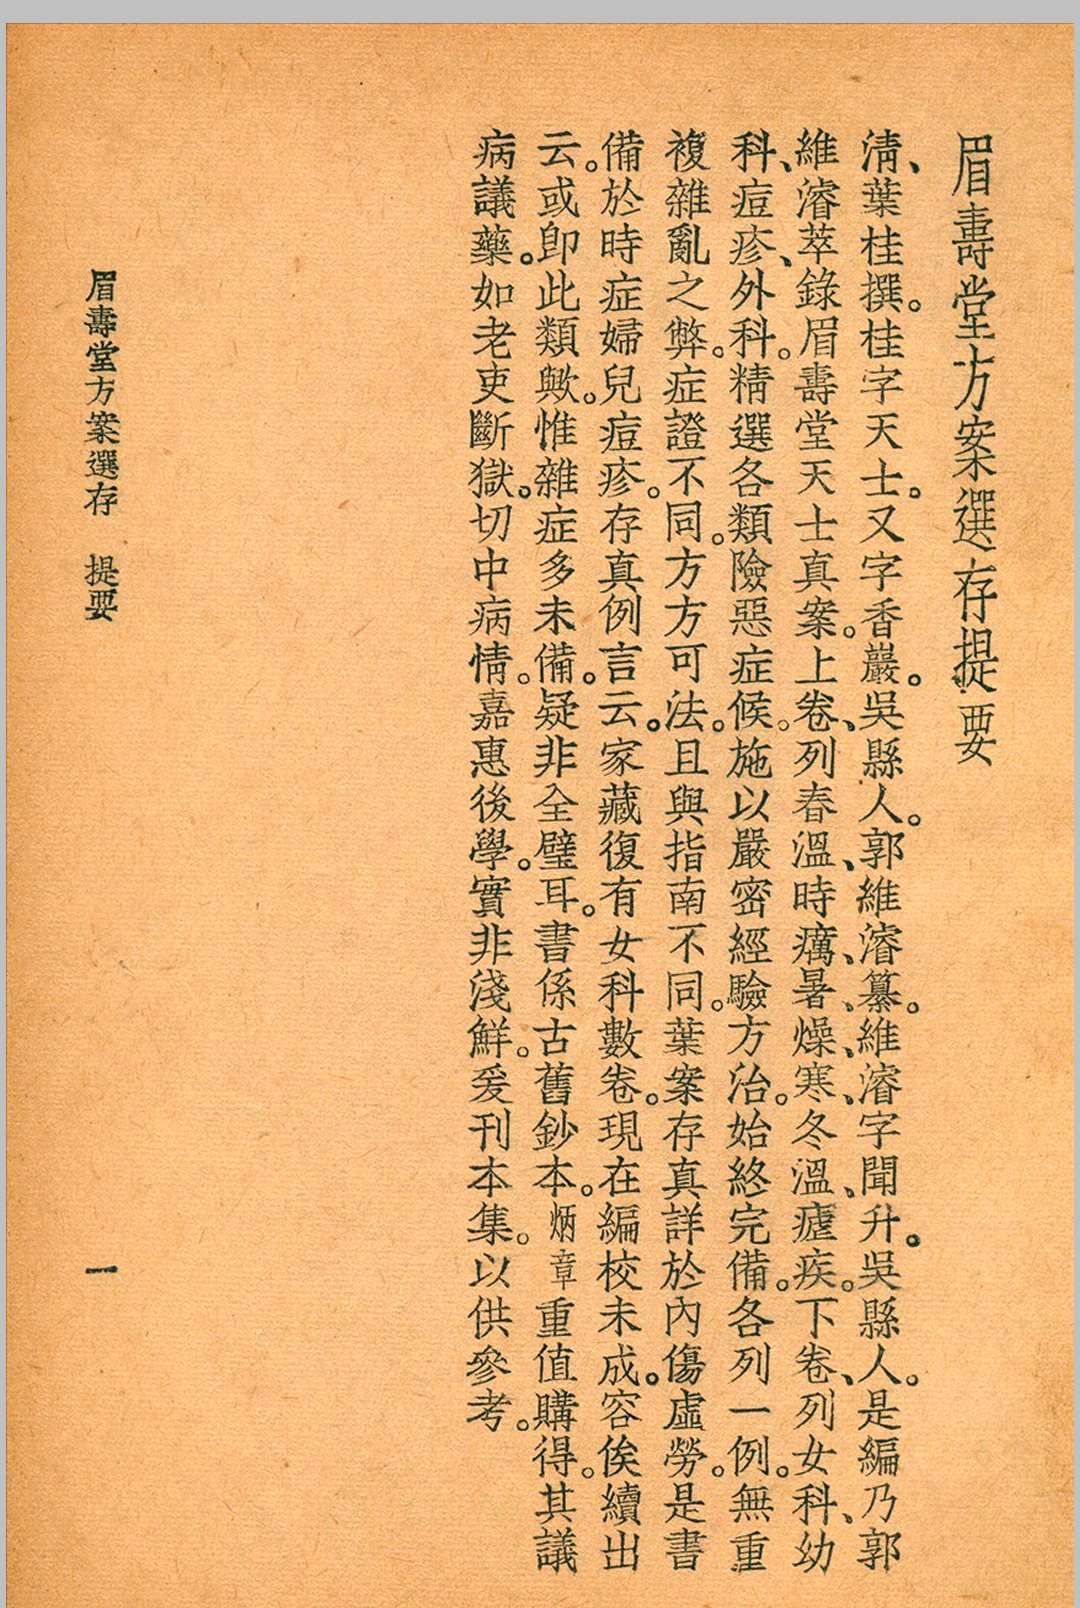 眉壽堂方案選存提要
淸、葉桂撰。桂字天士。又字香巖。吳縣人。郭維濬纂。維濬字聞升。吳縣人。是編乃郭
維濬萃錄眉壽堂天士真案。上卷、列春溫、時癘、暑、燥、寒、冬溫、瘧疾。下卷、列女科、幼
科、痘疹、外科。精選各類險惡症候。施以嚴密經驗方治。始終完備。各列一例。無重
複雜亂之弊。症證不同。方方可法。且與指南不同。葉案存真詳於內傷虛勞。是書
備於時症婦兒痘疹。存真例言云。家藏復有女科數卷。現在編校未成。容俟續出
云。或卽此類歟。惟雜症多未備。疑非全璧耳。書係古舊鈔本。炳章重值購得。其議
病議藥。如老吏斷獄。切中病情。嘉惠後學。實非淺鮮。爰刊本集。以供參考。
眉壽堂方案選存　提要
一